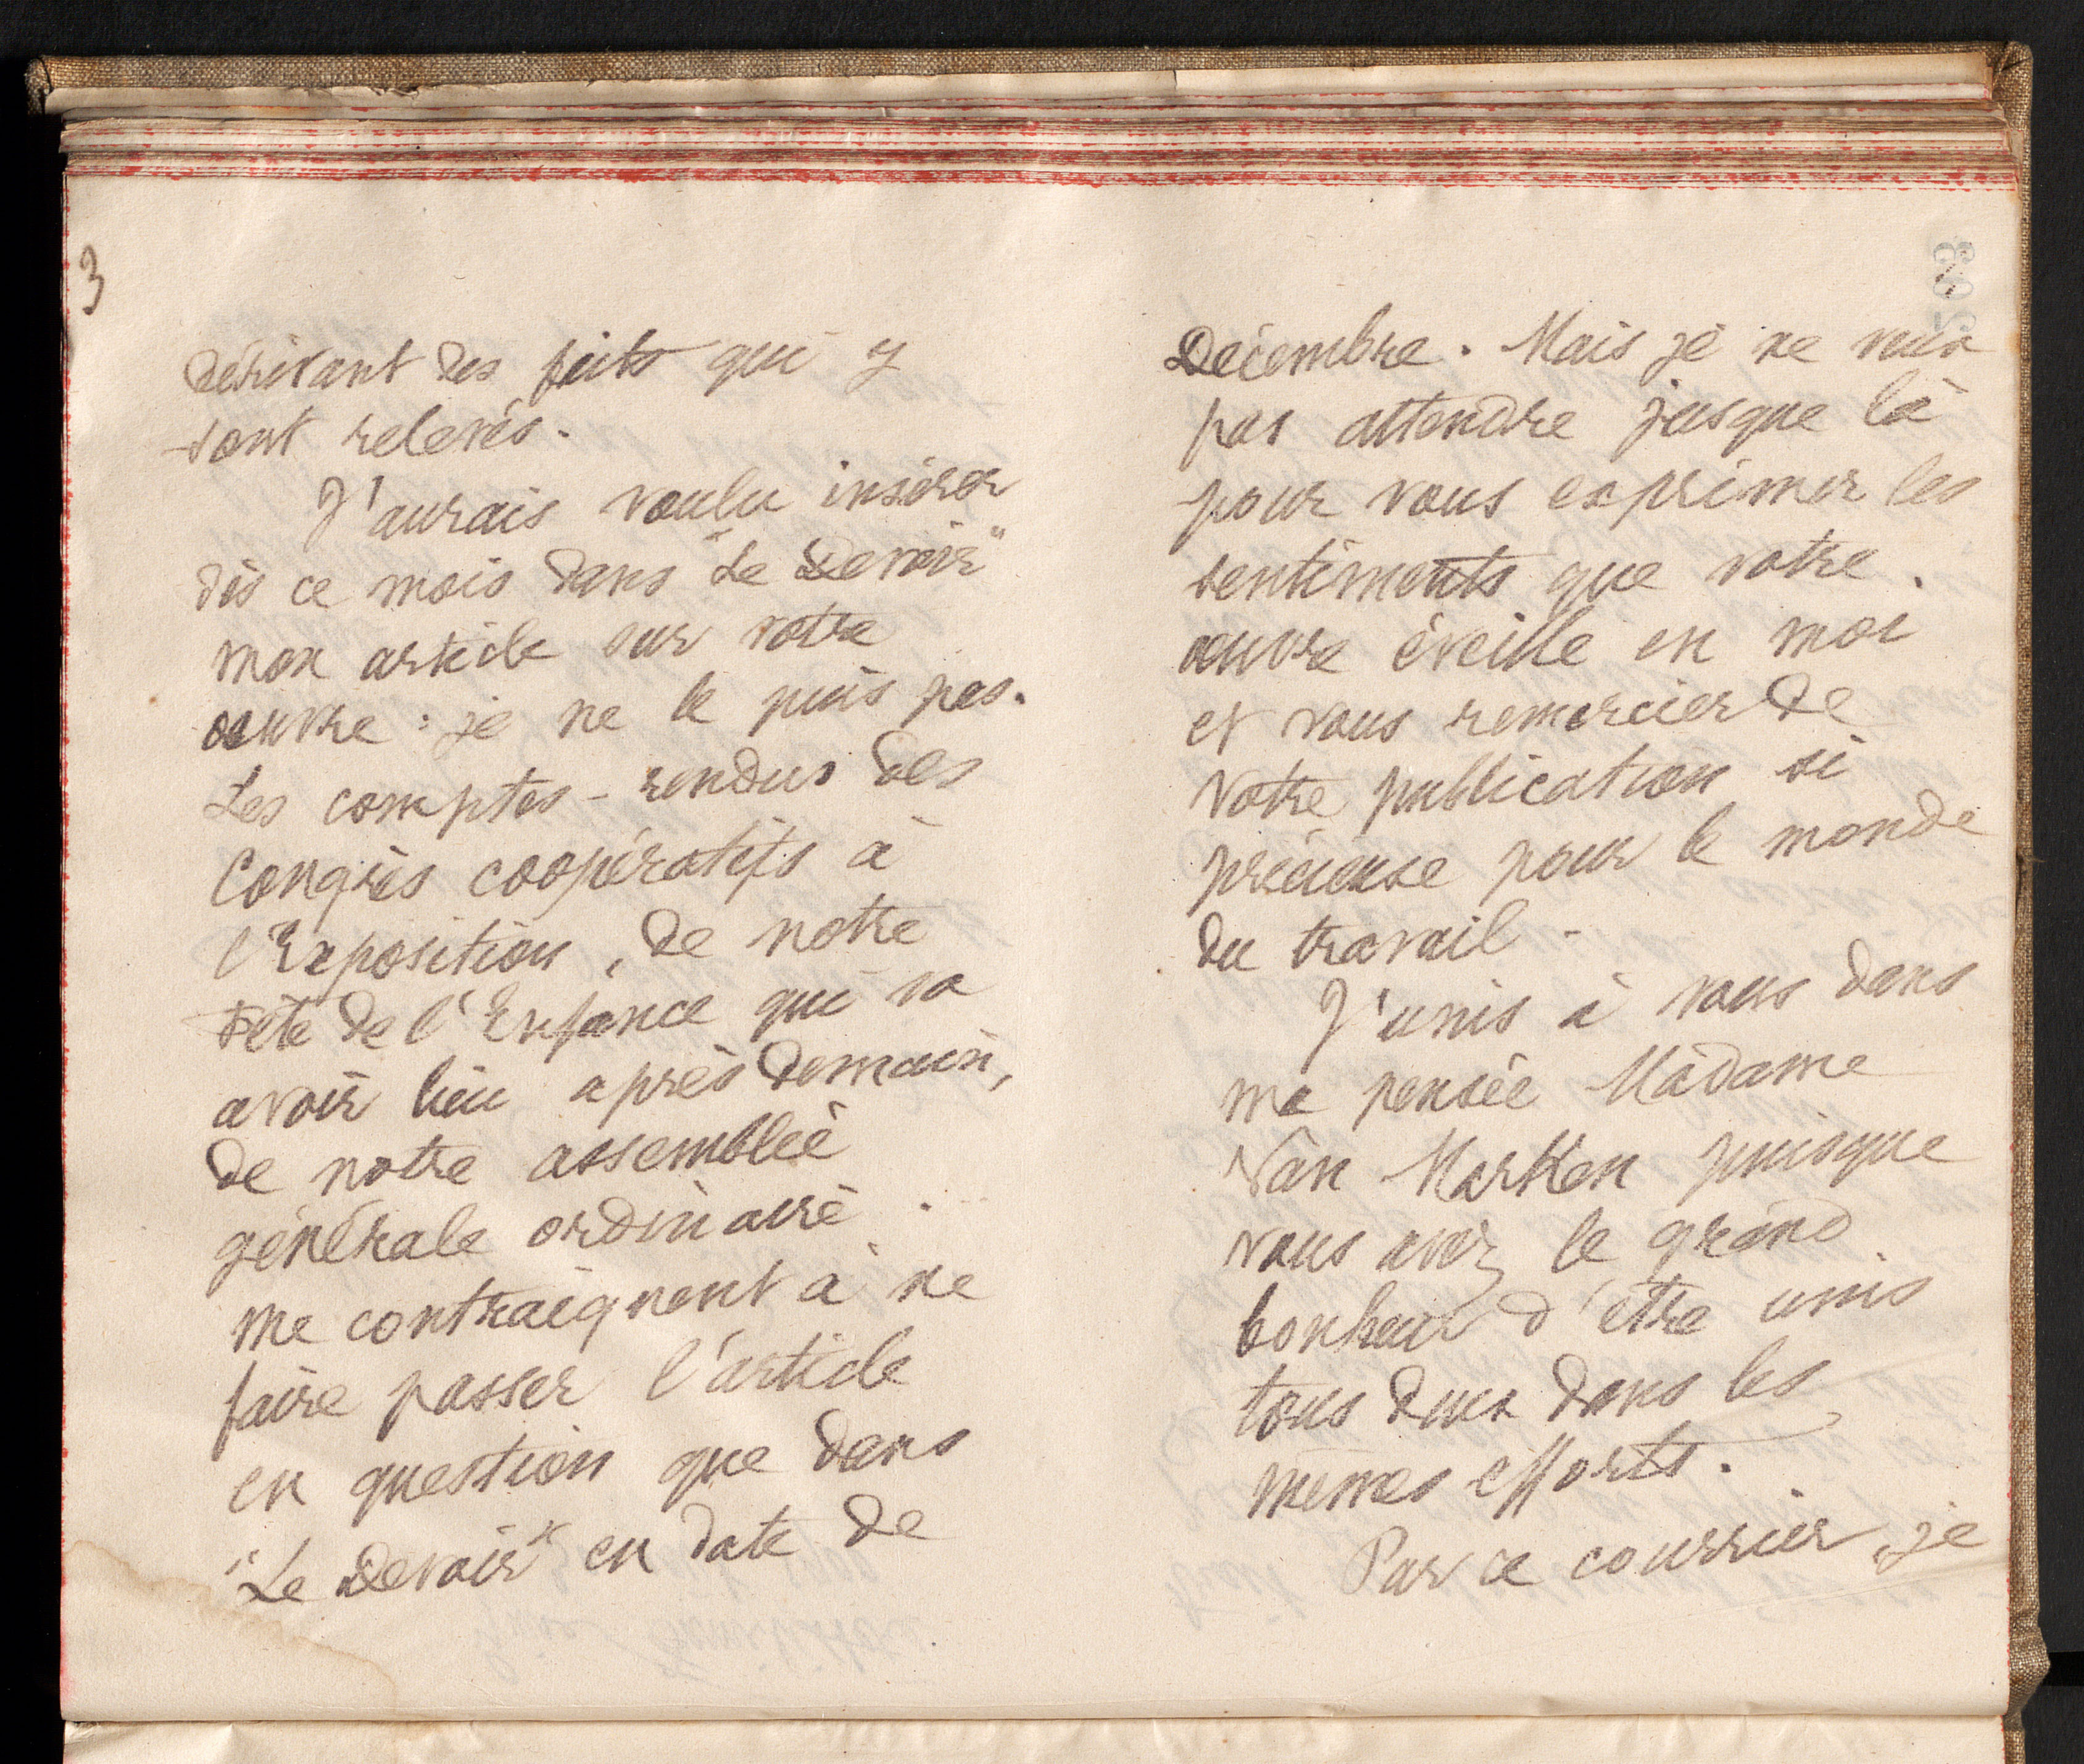 3
dérivant des faits qui y
sont relevés.
J'aurais voulu insérer
dès ce mois dans "Le Devoir"
mon article sur votre
oeuvre : je ne le puis pas.
Les comptes-rendus des
Congrès coopératifs à
l'Exposition, de notre
Fête de l'Enfance qui va
avoir lieu après demain,
de notre assemblée
générale ordinaire.
me contraignent à ne
faire passer l'article
en question que dans
"Le Devoir" en date de
Décembre. Mais je ne veux
pas attendre jusque là
pour vous exprimer les
sentiments que votre
oeuvre éveille en moi
et vous remercier de
votre publication si
précieuse pour le monde
du travail.
J'unis à vous dans
ma pensée Madame
Van Marken puisque
vous avez le grand
bonheur d'être unis
tous deux dans les
mêmes efforts.
Par ce courrier, je